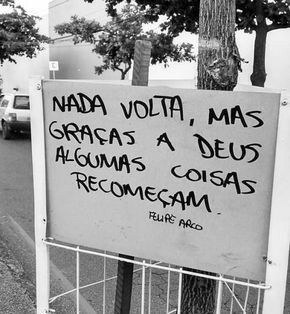 NADA VOLTA, MAS
GRAÇAS A DEUS
ALGUMAS COISAS
RECOMEÇAM.
FELIPE ARCO